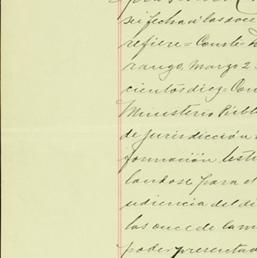 se fecha á las doce
refiere = Conste = D
rango, Marzo 2
cientos diez. Con
Ministerio Públ
de jurisdicción
formación test
landose para el
udiencia del di
las once de la m
poder presentad